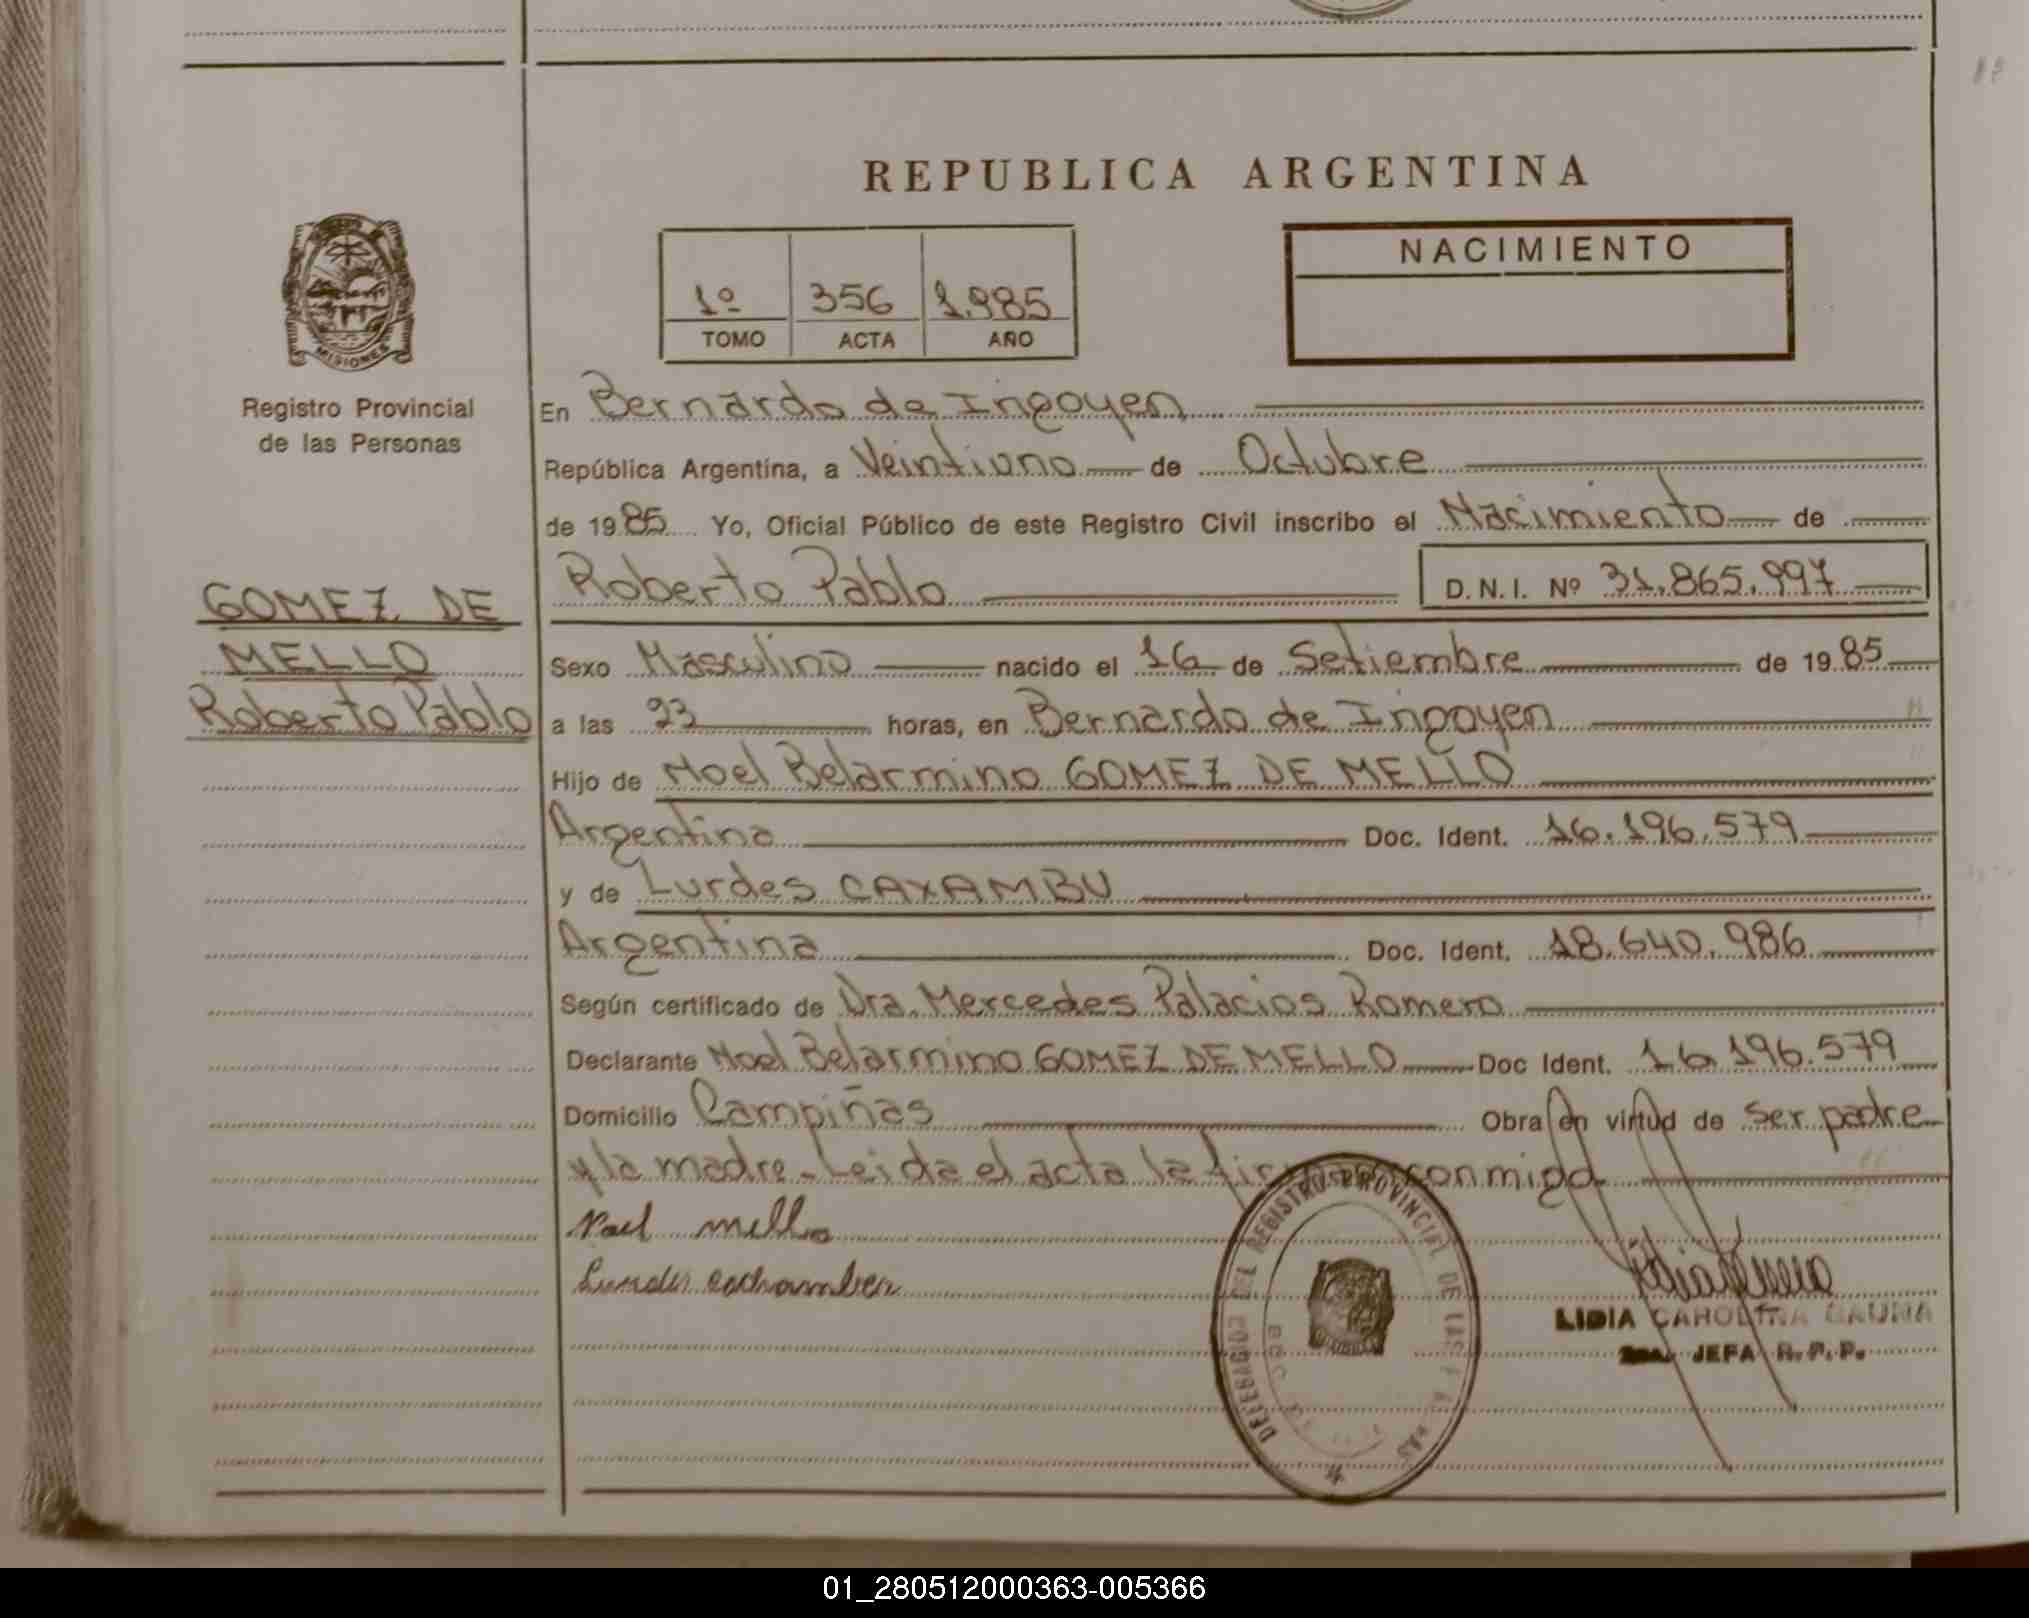 REPUBLICA ARGENTINA
NACIMIENTO
1º 356 1.985
TOMO ACTA AÑO
MISIONES
Registro Provincial
de las Personas
En Bernardo de Irigoyen
República Argentina, a Veintiuno de Octubre
de 1985 Yo, Oficial Público de este Registro Civil inscribo el Nacimiento de
Roberto Pablo D.N.I. Nº 31.865.997
GOMEZ DE
MELLO
Roberto Pablo
Sexo Masculino nacido el 16 de Setiembre de 1985
a las 23 horas, en Bernardo de Irigoyen
Hijo de Noel Belarmino GOMEZ DE MELLO
Argentino Doc. Ident. 16.196.579
y de Lurdes CAXAMBU
Argentina Doc. Ident. 18.640.986
Según certificado de Dra. Mercedes Palacios Romero
Declarante Noel Belarmino GOMEZ DE MELLO Doc Ident. 16.196.579
Domicilio Campiñas Obra en virtud de ser padre
y la madre - Leida el acta la firman conmigo
Noel mello
DEL REGISTRO PROVINCIAL DE LAS
LIDIA CAROLINA GAUNA
JEFA R.P.P.
01_280512000363-005366